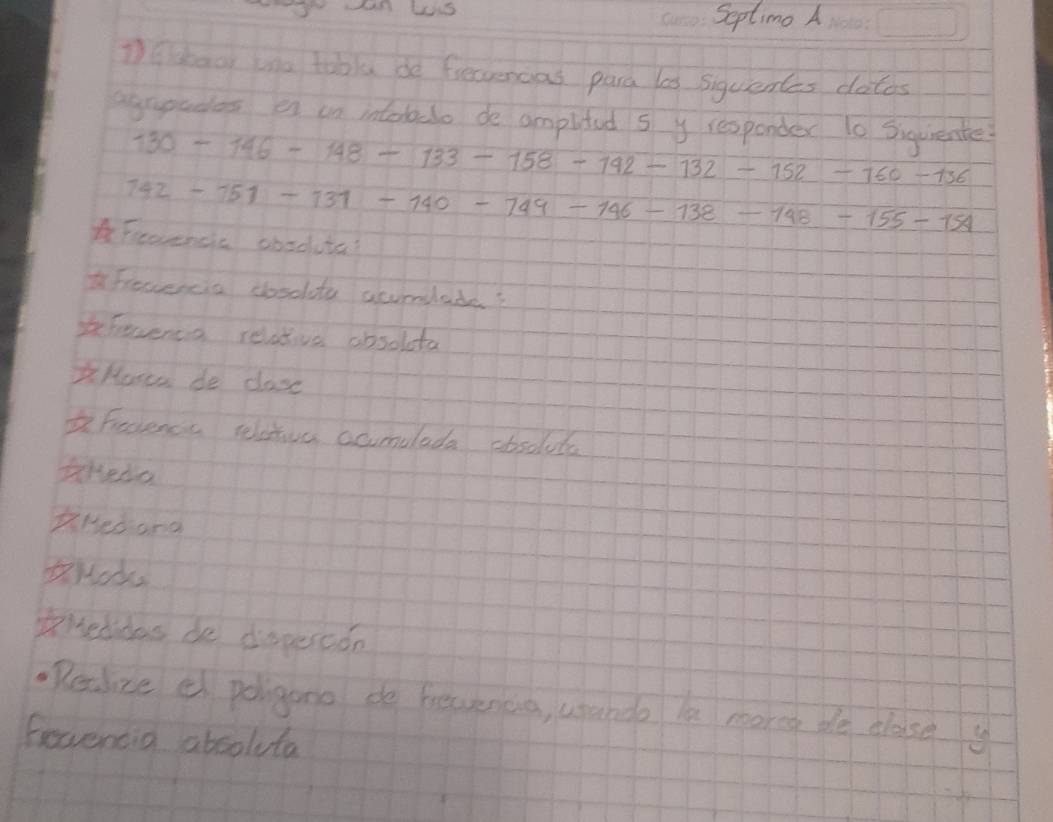 San Luis
Curso: Septimo A Nota:
1) Elaborar una tabla de frecuencias para los siguientes datos
agrupados en un intervalo de amplitud 5 y responder lo siguiente:
130 - 146 - 148 - 133 - 158 - 142 - 132 - 152 - 160 - 136
142 - 151 - 131 - 140 - 149 - 146 - 138 - 148 - 155 - 154
☆ Frecuencia absoluta:
☆ Frecuencia absoluta acumulada:
☆ Frecuencia relativa absoluta
☆ Marca de clase
☆ Frecuencia relativa acumulada absoluta
☆ Media
☆ Mediana
☆ Moda
☆ Medidas de dispercón
• Realize el poligono de frecuencia, usando la marca de clase y
frecuencia absoluta